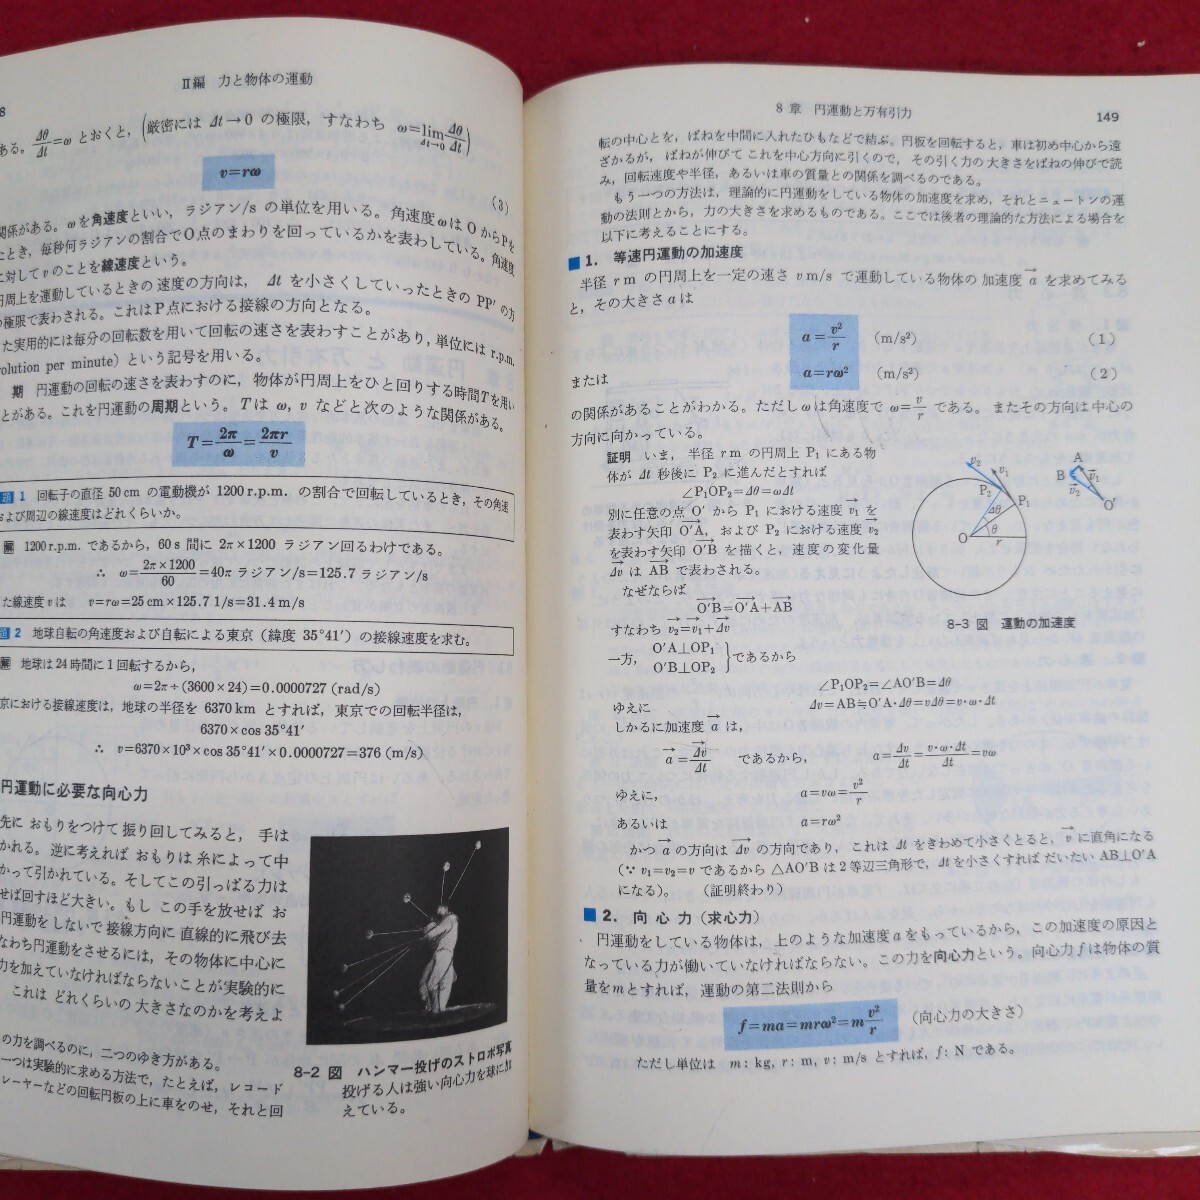 8
II編 力と物体の運動
ある。Δθ/Δt=ω とおくと，(厳密には Δt→0 の極限，すなわち ω=lim Δt→0 Δθ/Δt)
v=rω (3)
関係がある。ωを角速度といい，ラジアン/s の単位を用いる。角速度ωは OからPを
たとき，毎秒何ラジアンの割合でO点のまわりを回っているかを表わしている。角速度
に対してvのことを線速度という。
円周上を運動しているときの速度の方向は，Δt を小さくしていったときの PP′の方
の極限で表わされる。これはP点における接線の方向となる。
た実用的には毎分の回転数を用いて回転の速さを表わすことがあり，単位には r.p.m.
volution per minute) という記号を用いる。
期 円運動の回転の速さを表わすのに，物体が円周上をひと回りする時間Tを用い
ことがある。これを円運動の周期という。Tは ω, v などと次のような関係がある。
T=2π/ω=2πr/v
題 1 回転子の直径 50cm の電動機が 1200r.p.m. の割合で回転しているとき，その角速
および周辺の線速度はどれくらいか。
解 1200r.p.m. であるから，60s 間に 2π×1200 ラジアン回るわけである。
∴ ω=2π×1200/60=40π ラジアン/s=125.7 ラジアン/s
た線速度vは v=rω=25cm×125.7 1/s=31.4m/s
題 2 地球自転の角速度および自転による東京（緯度 35°41′）の接線速度を求む。
解 地球は24時間に1回転するから，
ω=2π÷(3600×24)=0.0000727 (rad/s)
京における接線速度は，地球の半径を 6370km とすれば，東京での回転半径は，
6370×cos35°41′
∴ v=6370×10³×cos35°41′×0.0000727=376 (m/s)
円運動に必要な向心力
先に おもりをつけて振り回してみると，手は
かれる。逆に考えれば おもりは糸によって中
かって引かれている。そしてこの引っぱる力は
せば回すほど大きい。もし この手を放せば お
円運動をしないで接線方向に直線的に飛び去
なわち円運動をさせるには，その物体に中心に
力を加えていなければならないことが実験的に
これは どれくらいの大きさなのかを考えよ
の力を調べるのに，二つのゆき方がある。
一つは実験的に求める方法で，たとえば，レコード
レーヤーなどの回転円板の上に車をのせ，それと回
8-2 図 ハンマー投げのストロボ写真
投げる人は強い向心力を球に
えている。
8 章 円運動と万有引力 149
転の中心とを，ばねを中間に入れたひもなどで結ぶ。円板を回転すると，車は初め中心から遠
ざかるが，ばねが伸びて これを中心方向に引くので，その引く力の大きさをばねの伸びで読
み，回転速度や半径，あるいは車の質量との関係を調べるのである。
もう一つの方法は，理論的に円運動をしている物体の加速度を求め，それとニュートンの運
動の法則とから，力の大きさを求めるものである。ここでは後者の理論的な方法による場合を
以下に考えることにする。
1. 等速円運動の加速度
半径 r m の円周上を一定の速さ v m/s で運動している物体の 加速度 a→ を求めてみる
と，その大きさaは
a=v²/r (m/s²) (1)
または a=rω² (m/s²) (2)
の関係があることがわかる。ただしωは角速度で ω=v/r である。またその方向は中心の
方向に向かっている。
証明 いま，半径 r m の円周上 P₁ にある物
体が Δt 秒後に P₂ に進んだとすれば
∠P₁OP₂=Δθ=ωΔt
別に任意の点 O′ から P₁ における速度 v₁→ を
表わす矢印 O′A→，および P₂ における速度 v₂→
を表わす矢印 O′B→ を描くと，速度の変化量
Δv→ は AB→ で表わされる。
なぜならば
O′B→=O′A→+AB→
すなわち v₂→=v₁→+Δv→
一方， O′A⊥OP₁
O′B⊥OP₂ }であるから
∠P₁OP₂=∠AO′B=Δθ
ゆえに Δv=AB≒O′A·Δθ=vΔθ=v·ω·Δt
しかるに加速度 a→ は，
a→=Δv→/Δt であるから， a=Δv/Δt=v·ω·Δt/Δt=vω
ゆえに， a=vω=v²/r
あるいは a=rω²
かつ a→ の方向は Δv→ の方向であり，これは Δt をきわめて小さくとると，v→ に直角になる
(∵ v₁=v₂=v であるから △AO′B は2等辺三角形で，Δtを小さくすれば だいたい AB⊥O′A
になる)。 (証明終わり)
v₂ v₁ P₂ P₁ Δθ θ O r
A B v₁ v₂ O′
8-3 図 運動の加速度
2. 向心力（求心力）
円運動をしている物体は，上のような加速度aをもっているから，この加速度の原因と
なっている力が働いていなければならない。この力を向心力という。向心力fは物体の質
量をmとすれば，運動の第二法則から
f=ma=mrω²=m v²/r （向心力の大きさ）
ただし単位は m: kg, r: m, v: m/s とすれば，f: N である。